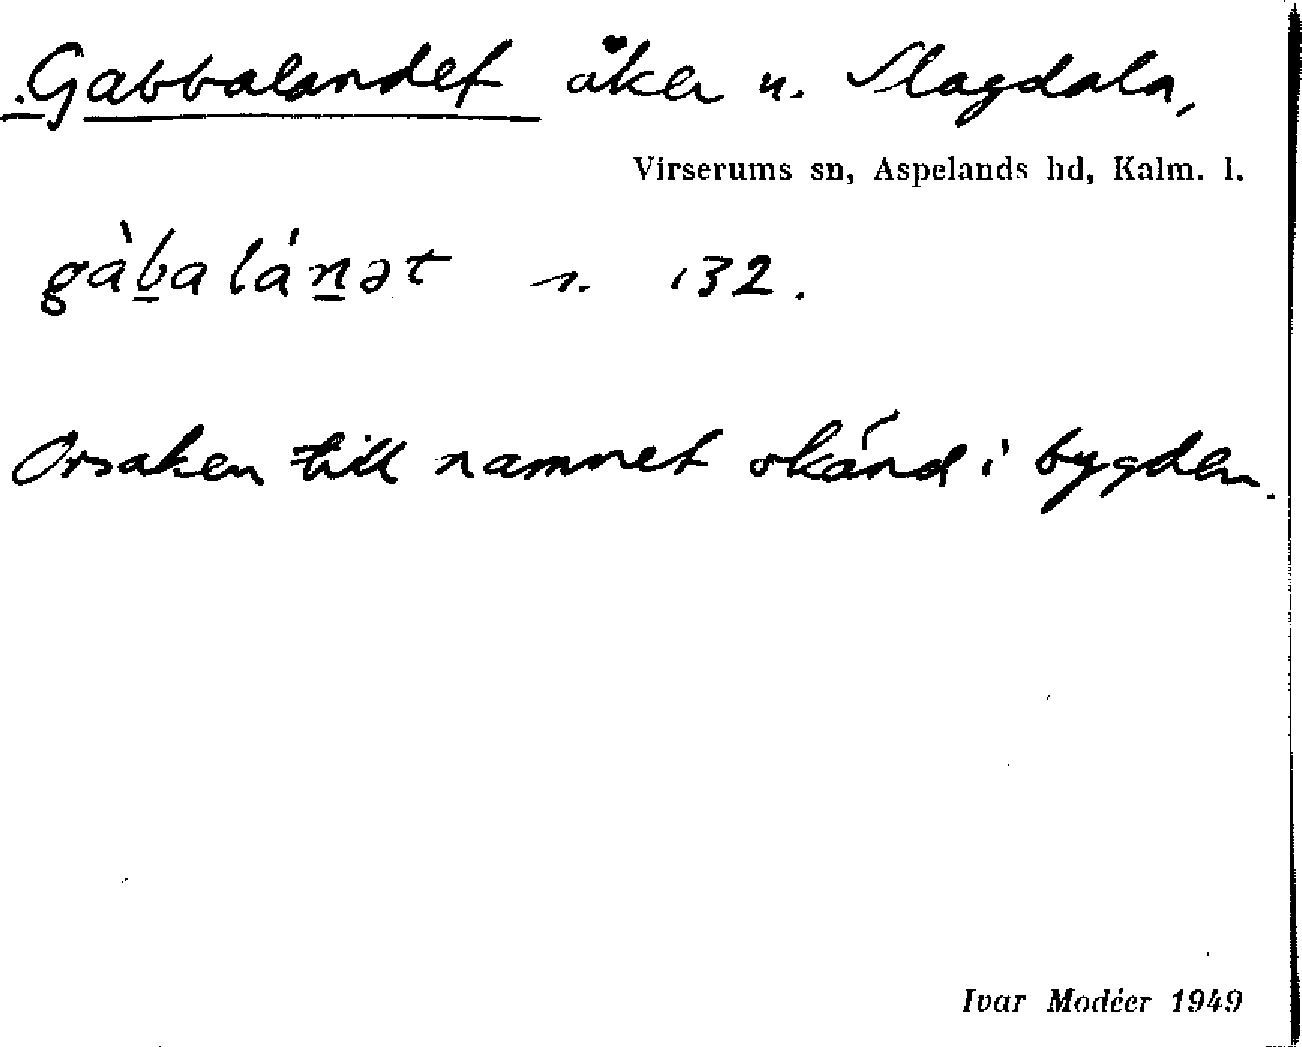 Gabbalandet åker u. Slagdala,
Virserums sn, Aspelands hd, Kalm. l.
gàb̲alán̲ət s. 132.
Orsaken till namnet okänd i bygden.
Ivar Modéer 1949